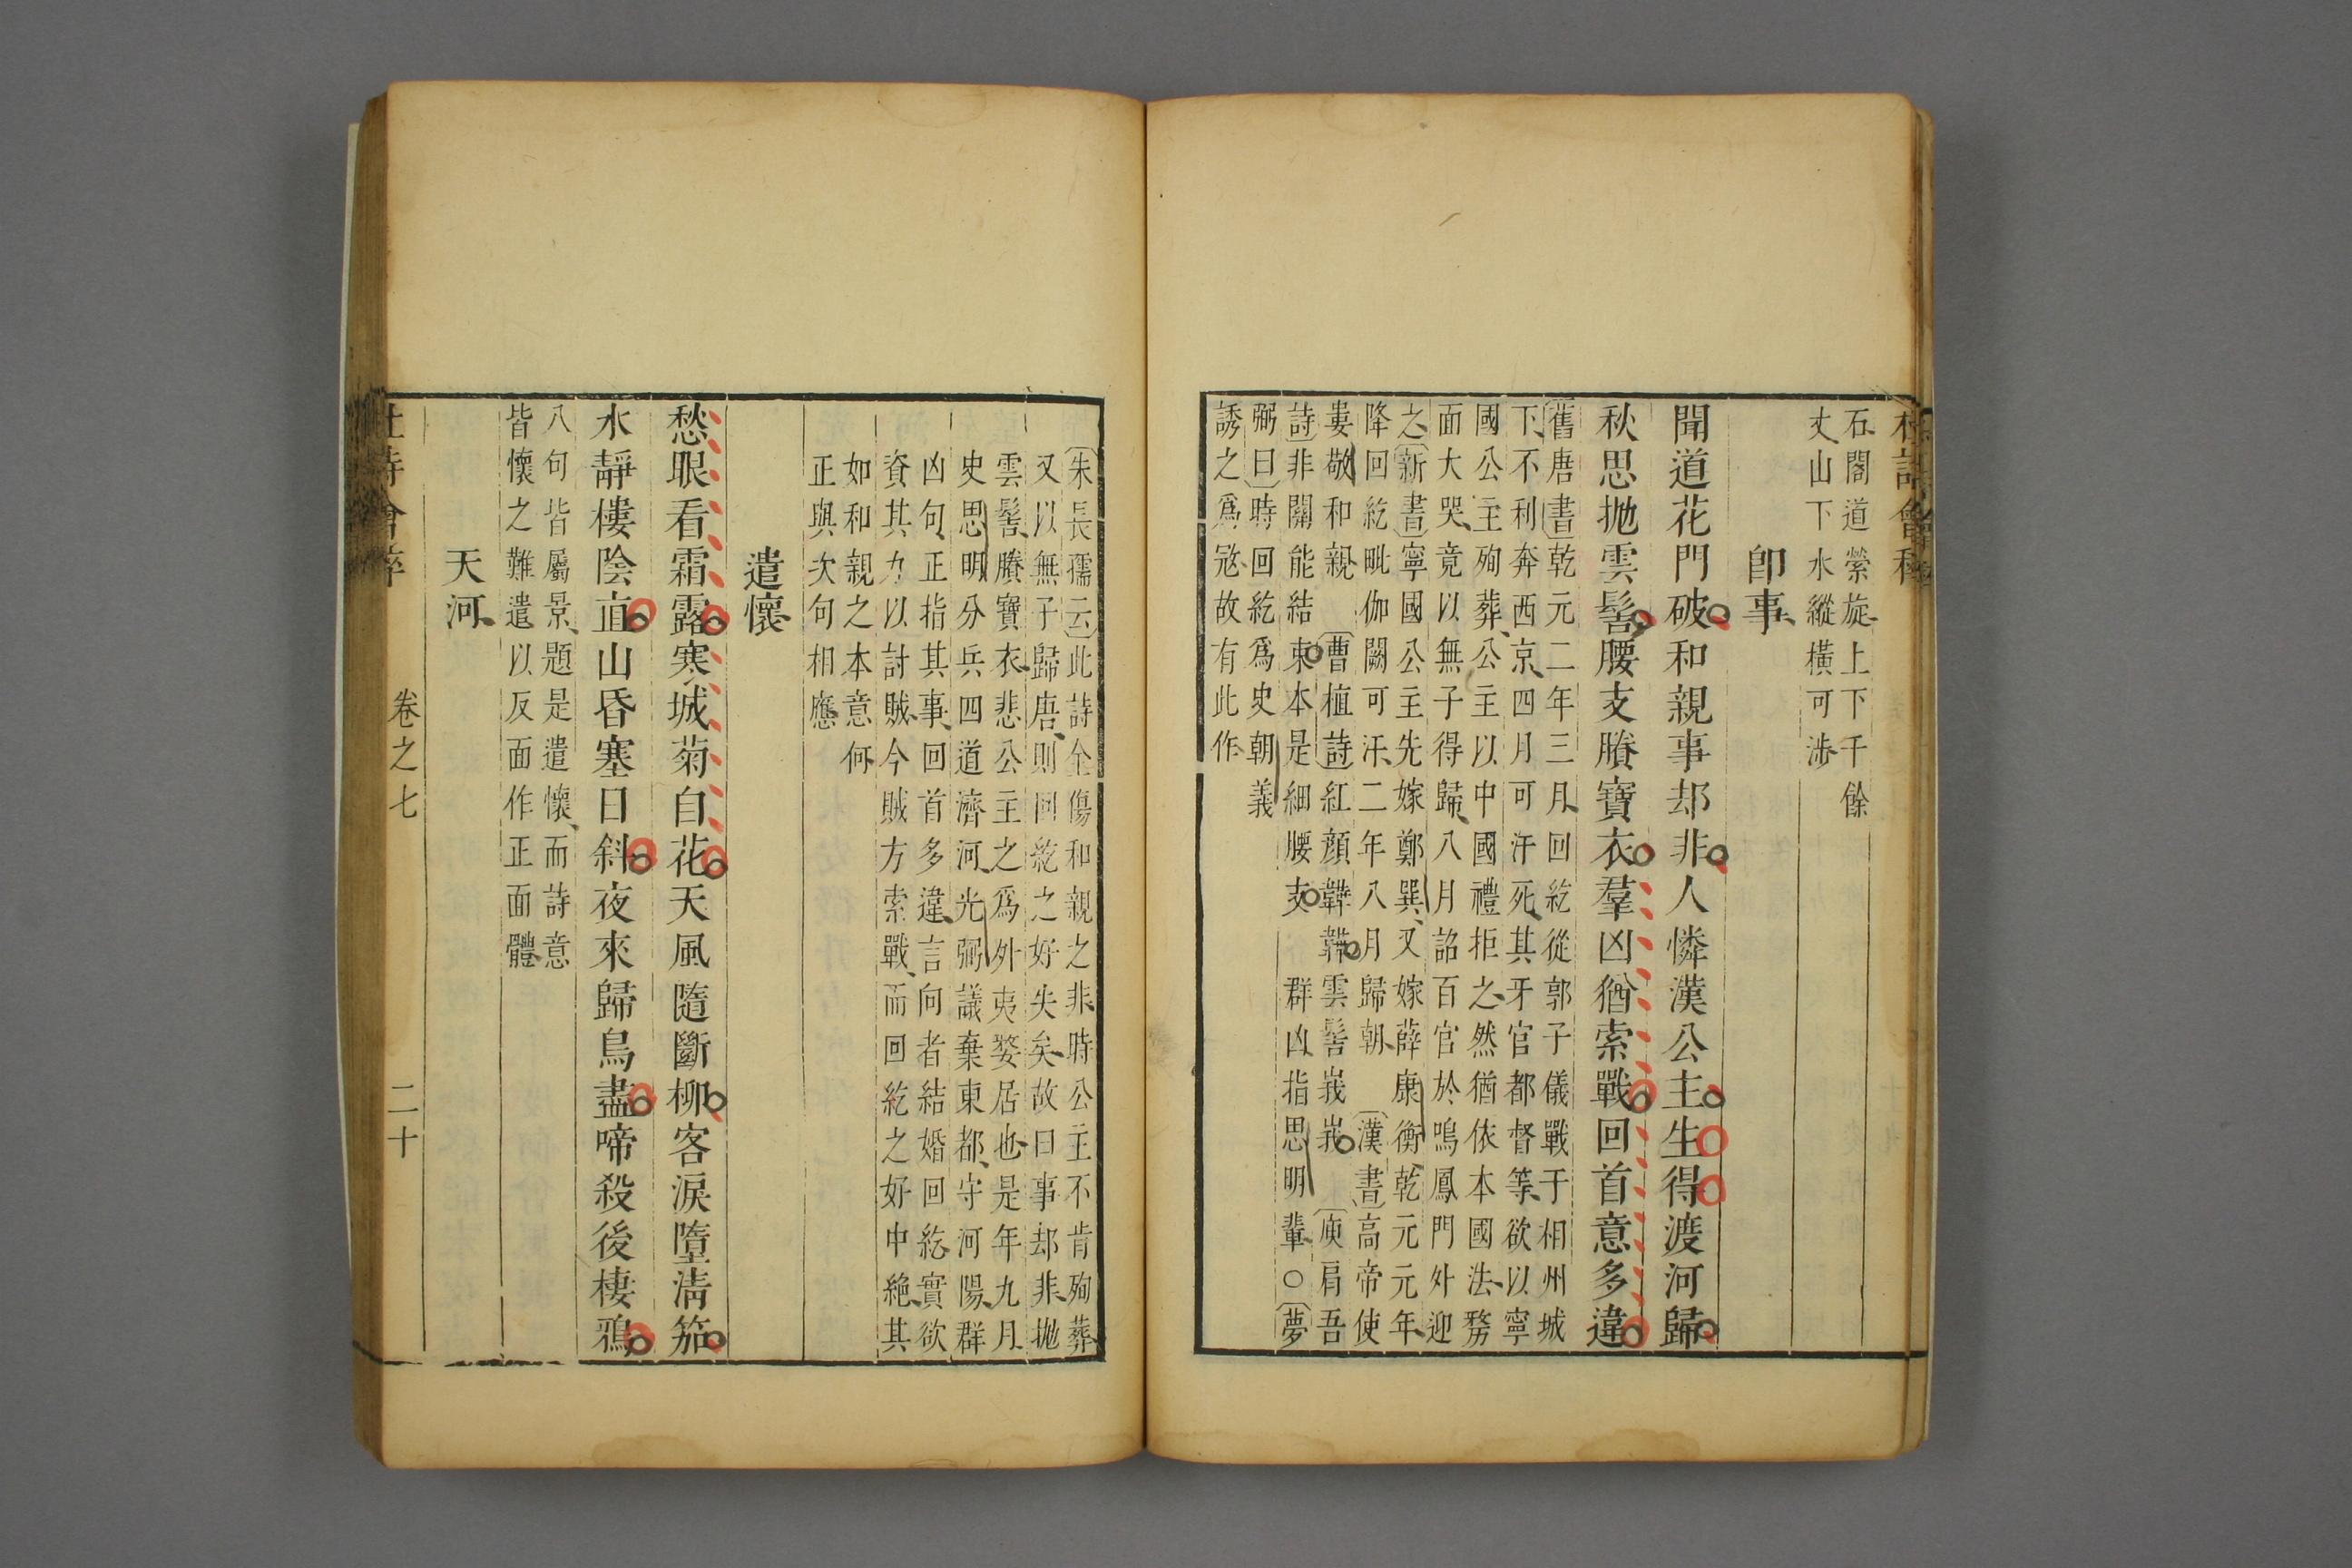 石閣道縈旋上下千餘
丈山下水縱橫可渉
即事
聞道花門破和親事却非人憐漢公主生得渡河歸
秋思抛雲髻腰支賸寶衣羣凶猶索戰回首意多違
舊唐書乾元二年三月回紇從郭子儀戰于相州城
下不利奔西京四月可汗死其牙官都督等欲以寧
國公主殉葬公主以中國禮拒之然猶依本國法務
面大哭竟以無子得歸八月詔百官於鳴鳳門外迎
之新書寧國公主先嫁鄭巽又嫁薛康衡乾元元年
降回紇毗伽闕可汗二年八月歸朝漢書高帝使
婁敬和親曹植詩紅顔韡韡雲髻峩峩庾肩吾
詩非關能結束本是細腰支群凶指思明輩○夢
弼曰時回紇爲史朝義
誘之爲冦故有此作
朱長孺云此詩全傷和親之非時公主不肯殉葬
又以無子歸唐則回紇之好失矣故曰事却非抛
雲髻賸寶衣悲公主之爲外夷婺居也是年九月
史思明分兵四道濟河光弼議棄東都守河陽群
凶句正指其事回首多違言向者結婚回紇實欲
資其力以討賊今賊方索戰而回紇之好中絶其
如和親之本意何
正與次句相應
遣懷
愁眼看霜露寒城菊自花天風隨斷柳客淚墮淸笳
水靜樓陰直山昏塞日斜夜來歸鳥盡啼殺後棲鴉
八句皆屬景題是遣懷而詩意
皆懷之難遣以反面作正面體
天河
卷之七
二十